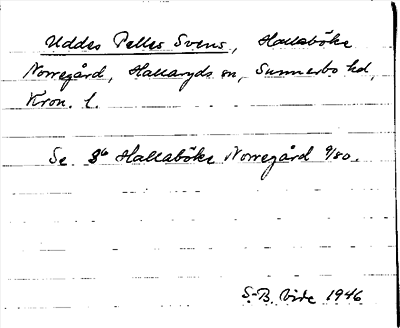 Uddes Pelles Svens, Hallaböke
Norregård, Hallaryds sn, Sunnerbo hd,
Kron. l.
Se. 8⁶ Hallaböke Norregård 9/80.
S-B. Vide 1946